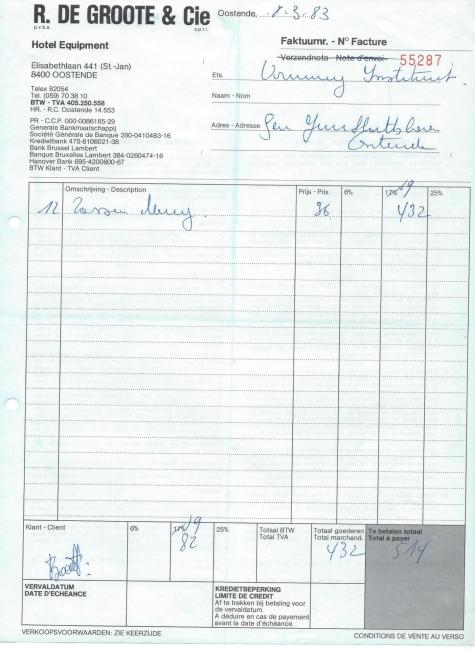 R. DE GROOTE & Cie
p.v.b.a. s.p.r.l.
Oostende, 8.3.83
Hotel Equipment
Faktuurnr. - N° Facture
Verzendnota - Note d'envoi 55287
Elisabethlaan 441 (St.-Jan)
8400 OOSTENDE
Ets. Instituut
Telex 82054
Tel. (059) 70 38 10
BTW - TVA 405.250.558
HR. - R.C. Oostende 14.553
Naam - Nom
PR - C.C.P. 000-0086165-29
Generale Bankmaatschappij
Société Générale de Banque 280-0410483-16
Kredietbank 475-6106021-38
Bank Brussel Lambert
Banque Bruxelles Lambert 384-0260474-16
Hanover Bank 695-4200600-67
BTW Klant - TVA Client
Adres - Adresse Gen
Oostende
Omschrijving - Description Prijs - Prix 6% 17% 19 25%
12 Tassen 36 432
Klant - Client 6% 17% 19 25% Totaal BTW Totaal goederen Te betalen totaal
Total TVA Total marchand. Total à payer
82 432 514
VERVALDATUM
DATE D'ECHEANCE
KREDIETBEPERKING
LIMITE DE CREDIT
Af te trekken bij betaling voor
de vervaldatum.
A déduire en cas de payement
avant la date d'échéance.
VERKOOPSVOORWAARDEN: ZIE KEERZIJDE
CONDITIONS DE VENTE AU VERSO